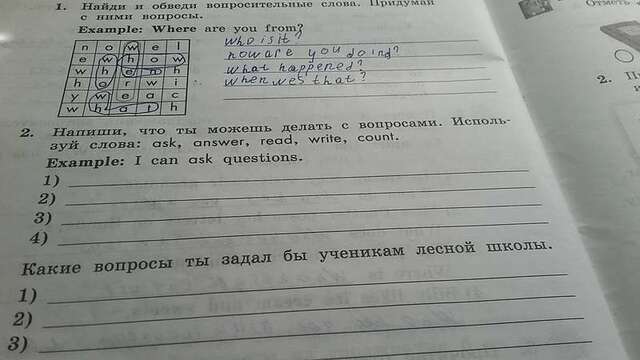 1. Найди и обведи вопросительные слова. Придумай
с ними вопросы.
Example: Where are you from?
n o w e l
e w h o w
w h e n h
h o r w i
y w e a c
w h a t h
who is it?
how are you doing?
what happened?
when wes that?
2. Напиши, что ты можешь делать с вопросами. Исполь-
зуй слова: ask, answer, read, write, count.
Example: I can ask questions.
1)
2)
3)
4)
Какие вопросы ты задал бы ученикам лесной школы.
1)
2)
3)
Отметь
2.